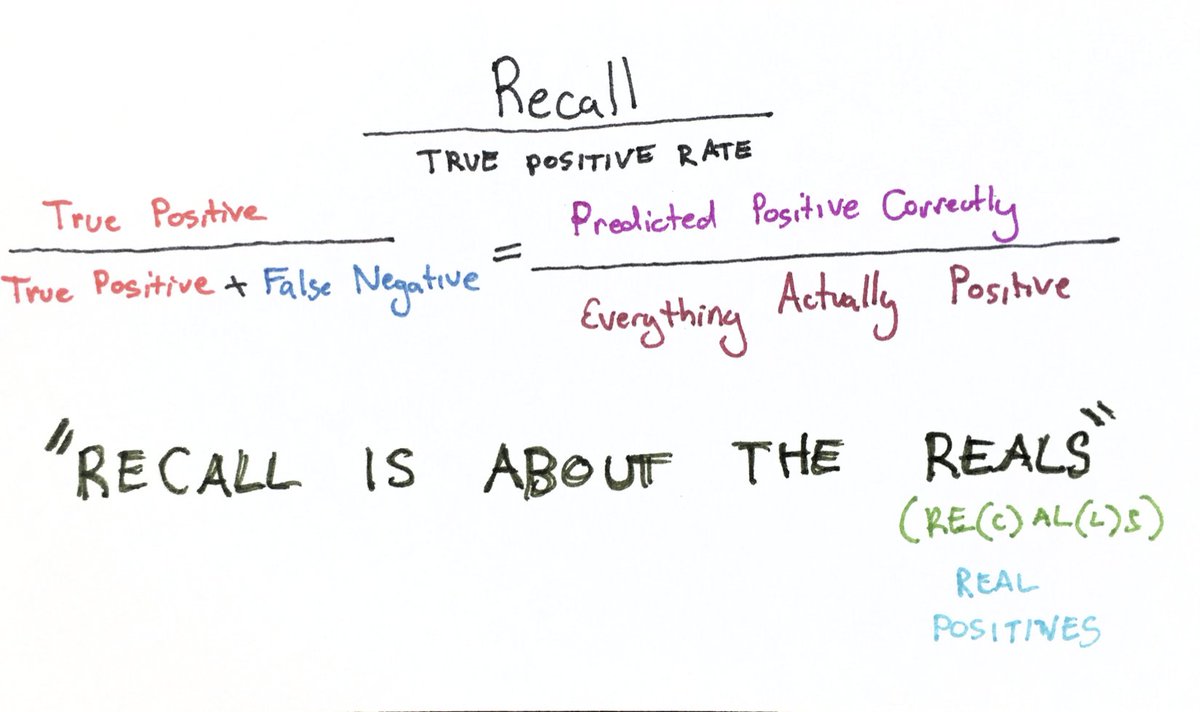 Recall
TRUE POSITIVE RATE
True Positive
True Positive + False Negative
=
Predicted Positive Correctly
Everything Actually Positive
"RECALL IS ABOUT THE REALS"
(RE(C)AL(L)S)
REAL
POSITIVES